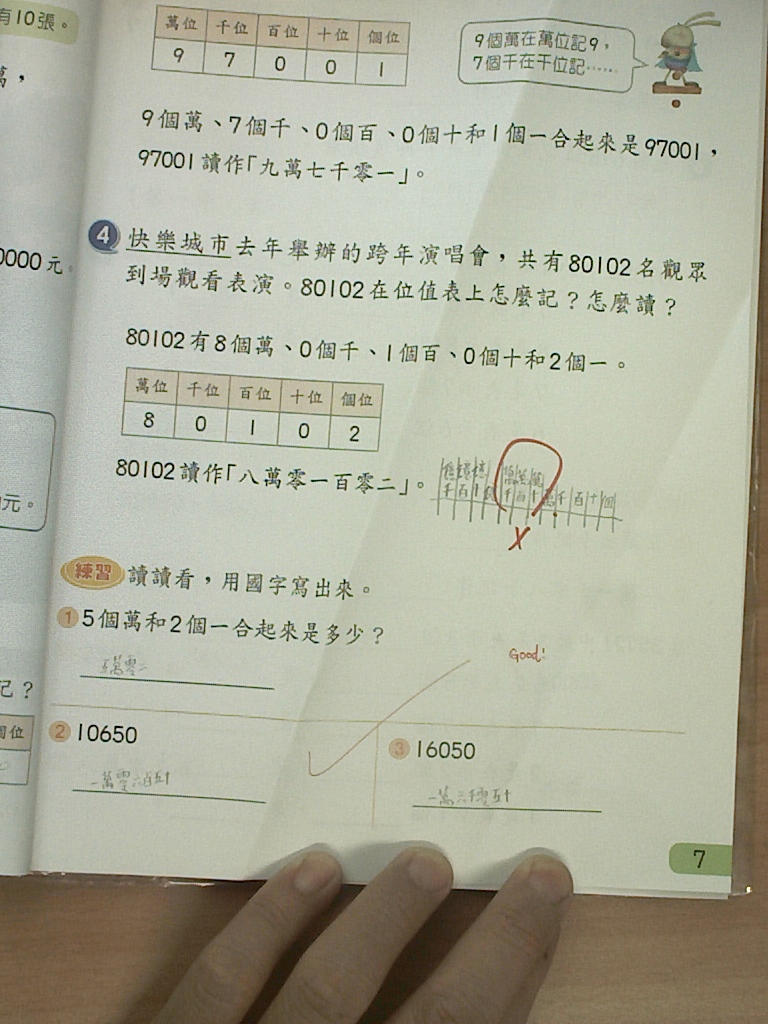 有10張。
萬位 千位 百位 十位 個位
9 7 0 0 1
9個萬在萬位記9，
7個千在千位記……
9個萬、7個千、0個百、0個十和1個一合起來是97001，
97001讀作「九萬七千零一」。
4 快樂城市去年舉辦的跨年演唱會，共有80102名觀眾
到場觀看表演。80102在位值表上怎麼記？怎麼讀？
0000元。
80102有8個萬、0個千、1個百、0個十和2個一。
萬位 千位 百位 十位 個位
8 0 1 0 2
80102讀作「八萬零一百零二」。
千 百 十 萬 千 百 十 個
X
元。
練習 讀讀看，用國字寫出來。
1 5個萬和2個一合起來是多少？
五萬零二
Good!
記？
個位
2 10650
一萬零六百五十
3 16050
一萬六千零五十
7